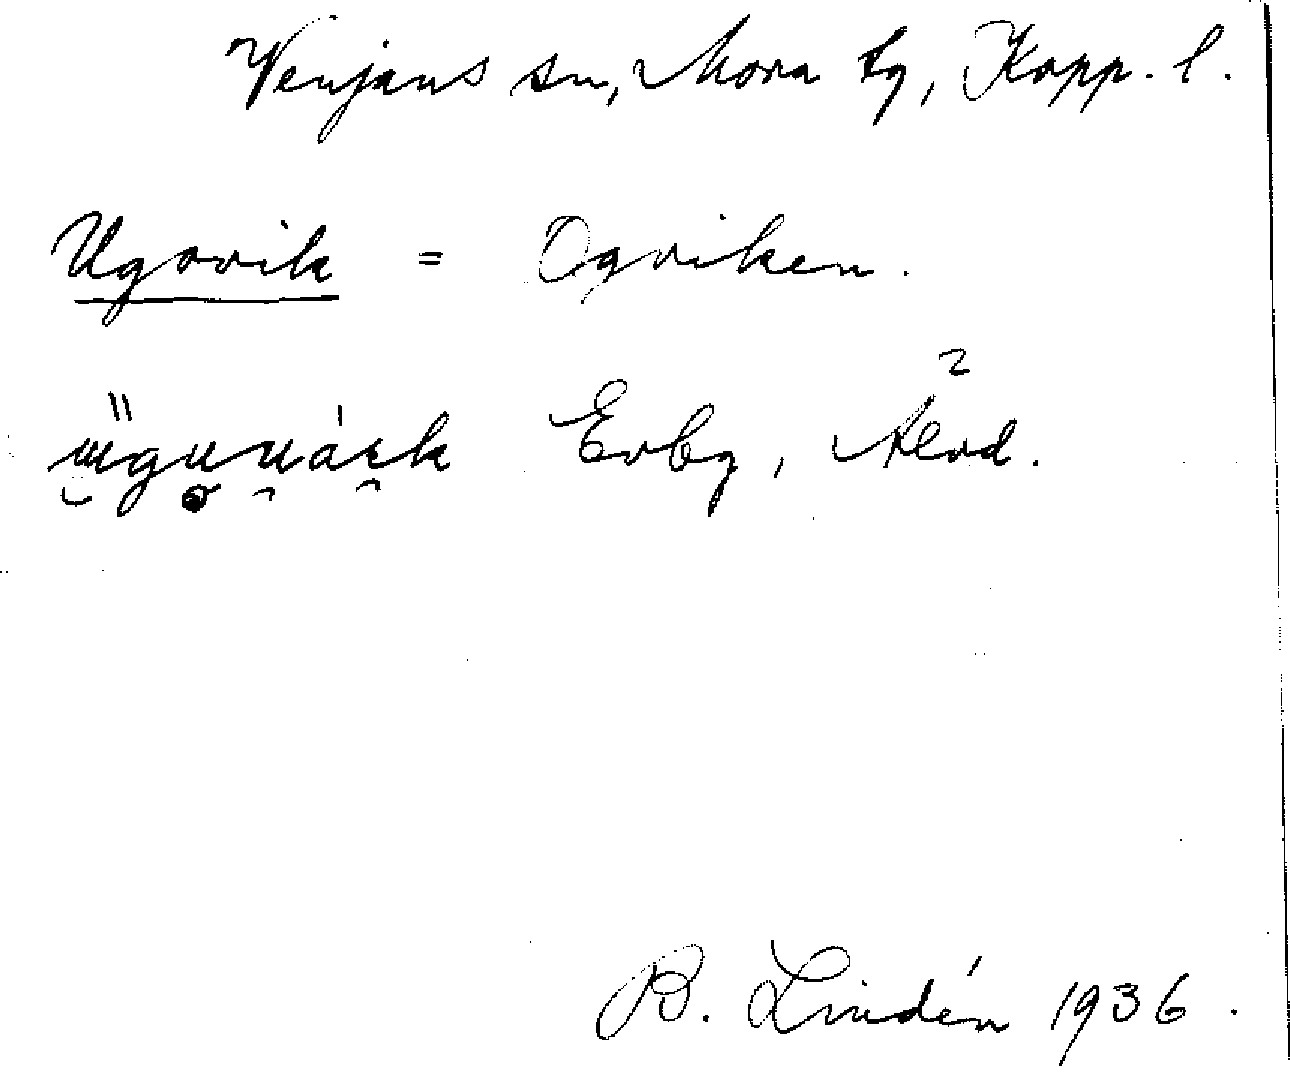 Venjans sn, Mora tg, Kopp. l.
Ugovik = Ogviken.
Evbg, Älvd.
B. Lindén 1936.